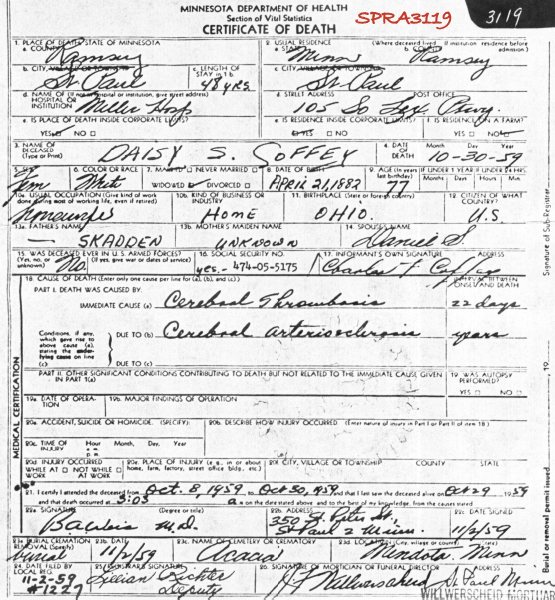 MINNESOTA DEPARTMENT OF HEALTH
Section of Vital Statistics
CERTIFICATE OF DEATH
SPRA3119
3119
1. PLACE OF DEATH STATE OF MINNESOTA
a. COUNTY Ramsey
2. USUAL RESIDENCE (Where deceased lived. If institution residence before admission)
a. Minn b. Ramsey
b. CITY, VILLAGE OR TOWNSHIP St. Paul
c. LENGTH OF STAY IN 1 b 48 YRS.
c. CITY, VILLAGE OR TOWNSHIP St. Paul
d. NAME OF (If not in hospital or institution, give street address)
HOSPITAL OR INSTITUTION Miller Hosp
d. STREET ADDRESS POST OFFICE
105 So Lex. Pkwy.
e. IS PLACE OF DEATH INSIDE CORPORATE LIMITS?
YES NO
e. IS RESIDENCE INSIDE CORPORATE LIMITS? YES NO
f. IS RESIDENCE ON A FARM? YES NO
3. NAME OF DECEASED (Type or Print) DAISY S. COFFEY
4. DATE OF DEATH Month Day Year 10-30-59
5. SEX Fem
6. COLOR OR RACE White
7. MARRIED NEVER MARRIED WIDOWED DIVORCED
8. DATE OF BIRTH APRIL 21, 1882
9. AGE (In years last birthday) 77
IF UNDER 1 YEAR Months Days
IF UNDER 24 HRS. Hours Min.
10a. USUAL OCCUPATION (Give kind of work done during most of working life, even if retired) Housewife
10b. KIND OF BUSINESS OR INDUSTRY HOME
11. BIRTHPLACE (State or foreign country) OHIO.
12. CITIZEN OF WHAT COUNTRY? U.S.
13a. FATHER'S NAME — SKADDEN
13b. MOTHER'S MAIDEN NAME UNKNOWN
14. SPOUSE'S NAME Daniel S.
15. WAS DECEASED EVER IN U.S. ARMED FORCES?
(Yes, no, or unknown) (If yes, give war or dates of service) No.
16. SOCIAL SECURITY NO. yes.- 474-05-5175
17. INFORMANT'S OWN SIGNATURE ADDRESS
Charles F Coffey
18. CAUSE OF DEATH (Enter only one cause per line for (a), (b), and (c).)
INTERVAL BETWEEN ONSET AND DEATH
PART I. DEATH WAS CAUSED BY:
IMMEDIATE CAUSE (a) Cerebral Thrombosis 22 days
Conditions, if any, which gave rise to above cause (a), stating the underlying cause on line (c)
DUE TO (b) Cerebral arteriosclerosis years
DUE TO (c)
PART II. OTHER SIGNIFICANT CONDITIONS CONTRIBUTING TO DEATH BUT NOT RELATED TO THE IMMEDIATE CAUSE GIVEN IN PART 1(a)
19. WAS AUTOPSY PERFORMED?
YES NO
19a. DATE OF OPERATION
19b. MAJOR FINDINGS OF OPERATION
20a. ACCIDENT, SUICIDE OR HOMICIDE. (SPECIFY):
20b. DESCRIBE HOW INJURY OCCURRED (Enter nature of injury in Part I or Part II of item 18)
20c. TIME OF INJURY Hour Month, Day, Year
20d. INJURY OCCURRED
WHILE AT WORK NOT WHILE AT WORK
20e. PLACE OF INJURY (e.g., in or about home, farm, factory, street office bldg., etc.)
20f. CITY, VILLAGE OR TOWNSHIP COUNTY STATE
21. I certify I attended the deceased from Oct. 8, 1959 to Oct 30, 1959 and that I last saw the deceased alive on Oct 29 1959
and that death occurred at 3:05 a m on the date stated above and to the best of my knowledge, from the causes stated
22a. SIGNATURE (Degree or title) M.D.
22b. ADDRESS 350 St. Peter St, St Paul 2 Minn.
22c. DATE SIGNED 11/2/59
23a. BURIAL CREMATION REMOVAL (Specify) Burial
23b. DATE 11/2/59
23c. NAME OF CEMETERY OR CREMATORY Acacia
23d. LOCATION (City, village or county) (State) Mendota, Minn
24. DATE REC'D BY LOCAL REG. 11-2-59 #1227
25. REGISTRAR'S SIGNATURE Lillian Richter Deputy
26. SIGNATURE OF MORTICIAN OR FUNERAL DIRECTOR ADDRESS
J F Willwerscheid St Paul Minn
WILLWERSCHEID MORTUAR
MEDICAL CERTIFICATION
Signature of Sub-Registrar
Burial or removal permit issued
19